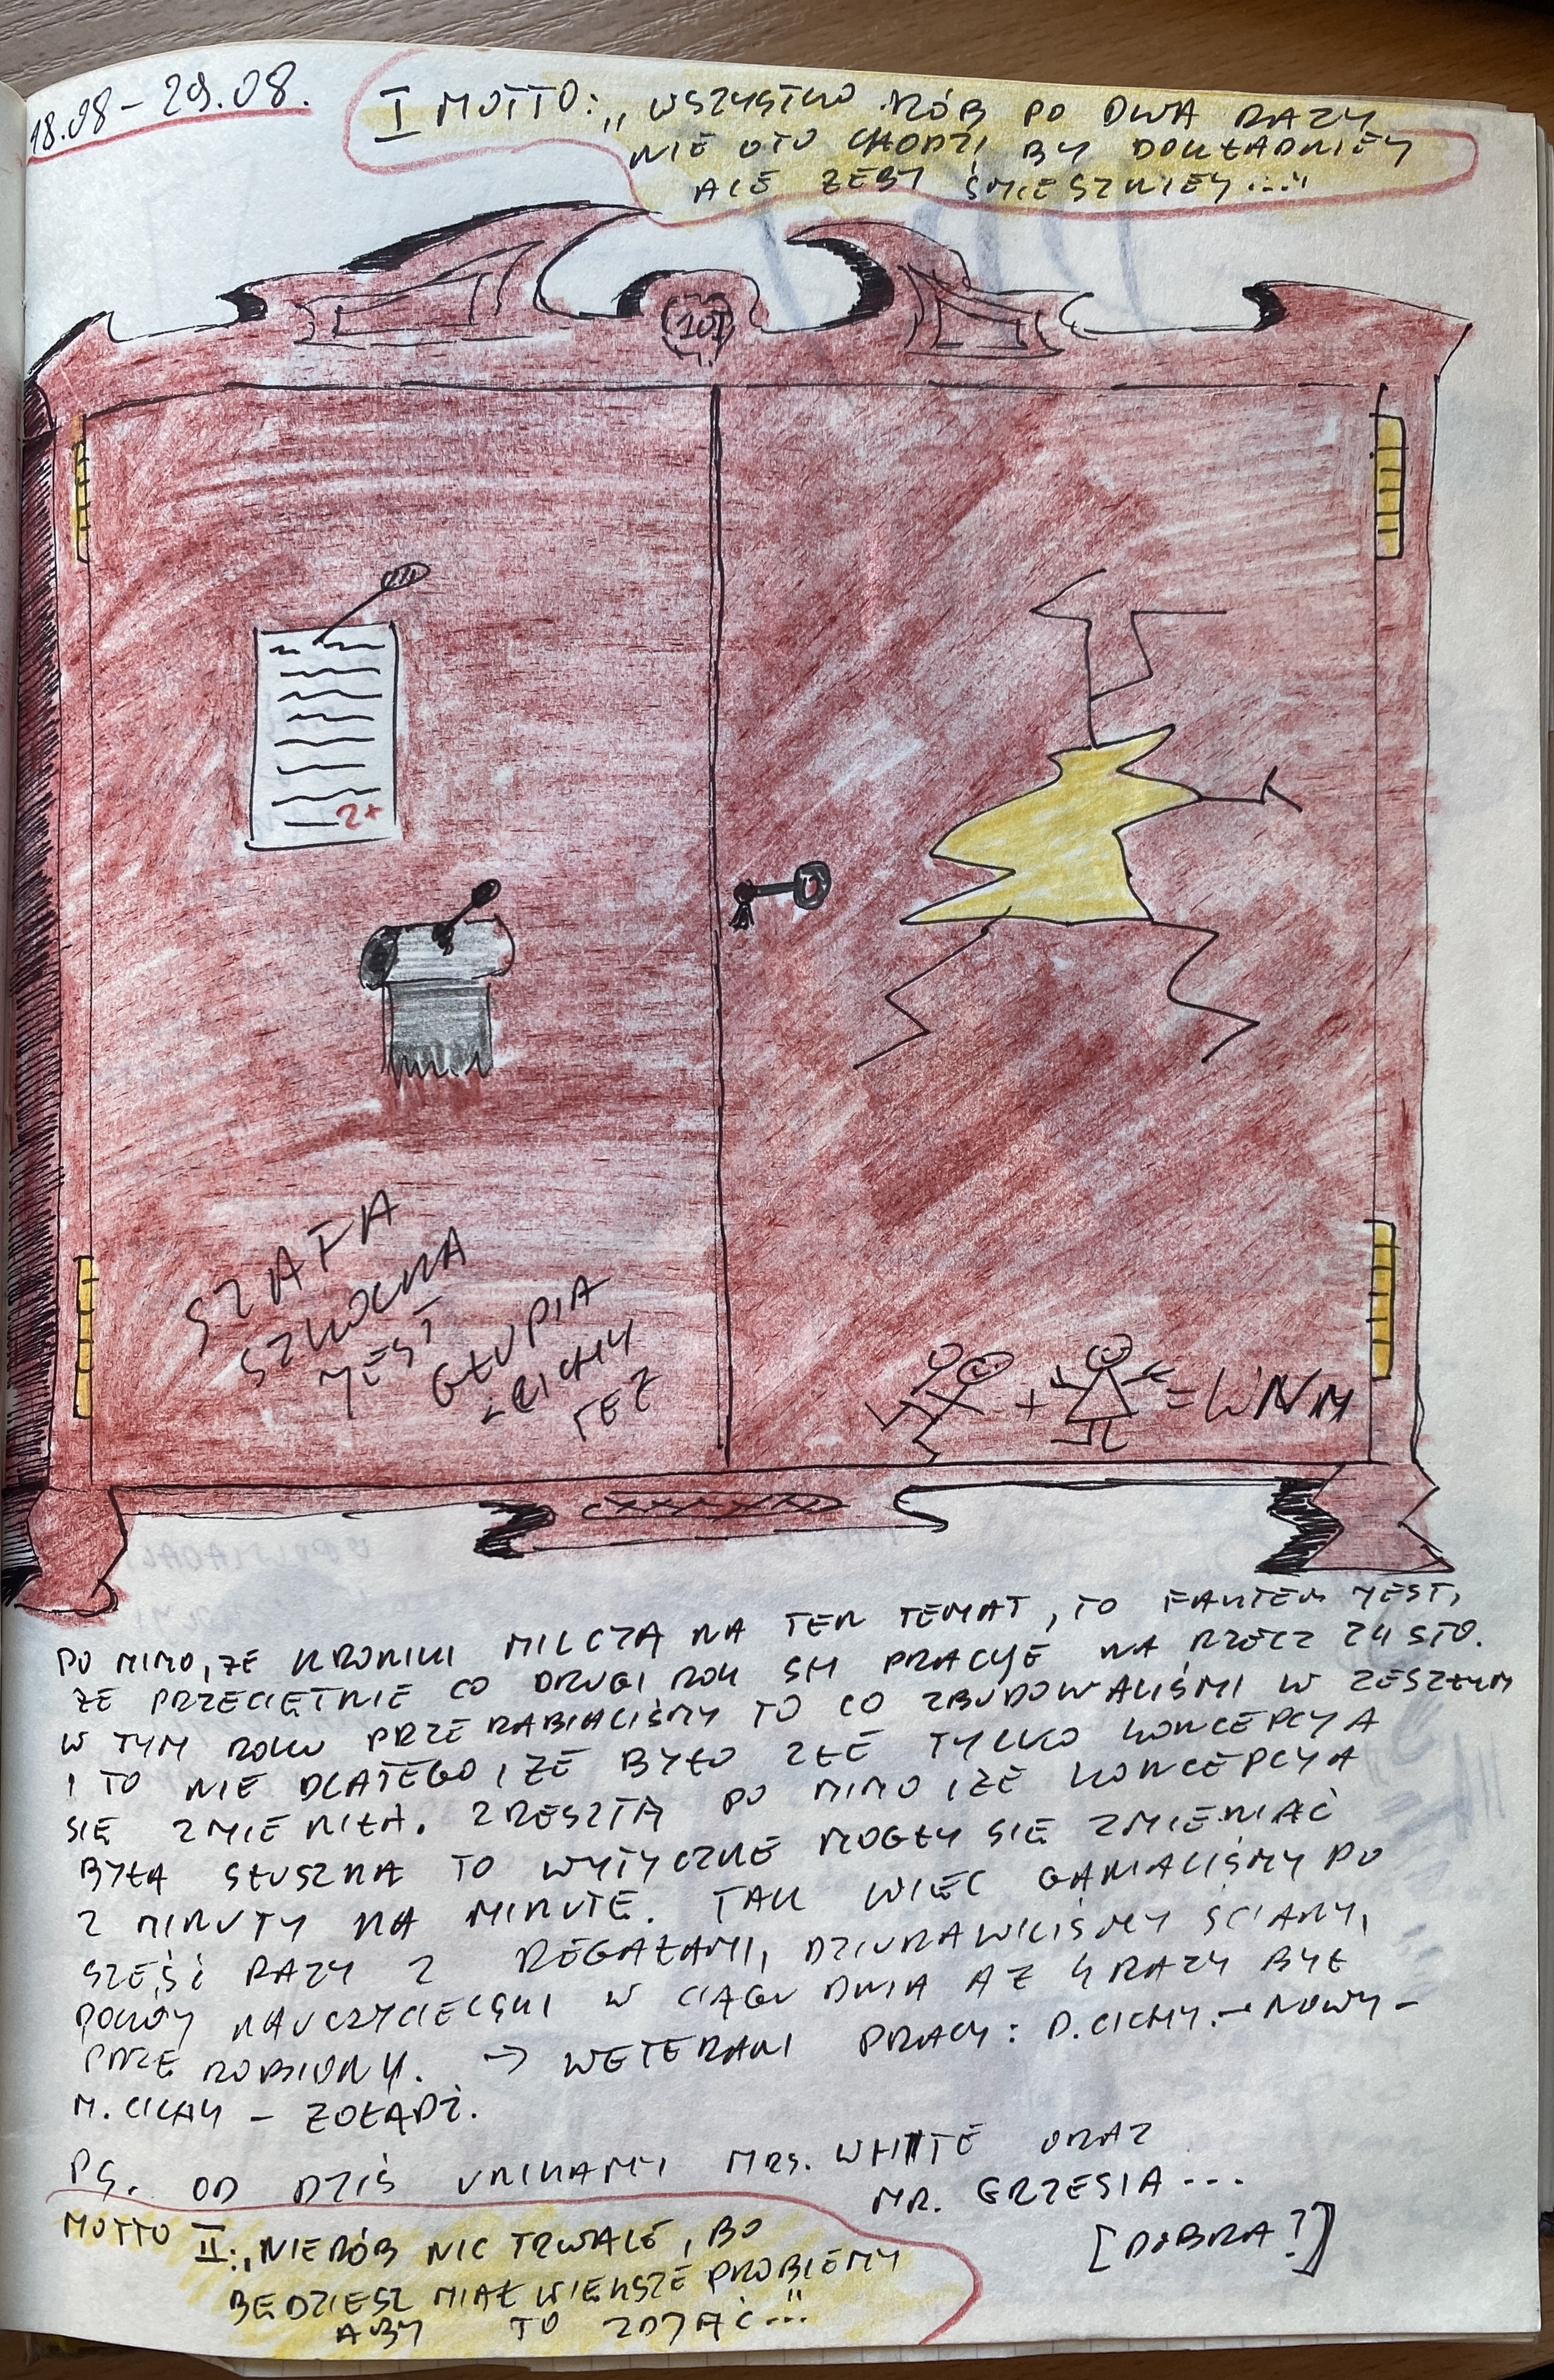 18.08 - 29.08.
I MOTTO: „WSZYSTKO RÓB PO DWA RAZY
NIE OTO CHODZI BY DOKŁADNIEY
ALE ŻEBY ŚMIESZNIEY..."
101
2+
SZAFA
SZKOLNA
JEST
GŁUPIA
I CICHY
TEŻ
+ = WNM
PO MIMO, ŻE KRONIKI MILCZĄ NA TEN TEMAT, TO FAKTEM JEST,
ŻE PRZECIĘTNIE CO DRUGI ROK SM PRACYE NA RZECZ
W TYM ROKU PRZERABIALIŚMY TO CO ZBUDOWALIŚMI W ZESZŁYM
I TO NIE DLATEGO, ŻE BYŁO ZŁE TYLKO KONCEPCYA
SIĘ ZMIENIŁA. ZRESZTĄ PO MIMO IŻE KONCEPCYA
BYŁA SŁUSZNA TO WYTYCZNE MOGŁY SIĘ ZMIENIAĆ
Z MINUTY NA MINUTE. TAK WIĘC GANIALIŚMY PO
SZEŚĆ RAZY Z REGAŁAMI, DZIURAWILIŚMY ŚCIANY,
POKÓY NAUCZYCIELSKI W CIĄGU DNIA AŻ 4 RAZY BYŁ
PRZEROBIONY. → WETERANI PRACY: D. CICHY. – NOWY –
M. CICHY – ŻOŁĄDŹ.
PS. OD DZIŚ UNIKAMY MRS. WHITE ORAZ
MR. GRZESIA ...
[DOBRA?]
MOTTO II: „NIERÓB NIC TRWALE, BO
BĘDZIESZ MIAŁ WIĘKSZE PROBLEMY
ABY TO ZDJĄĆ..."